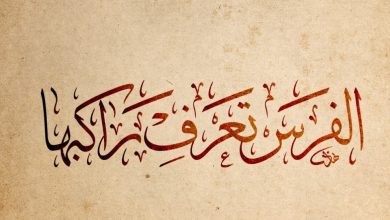 الفرَس تعرَفِ رَاكبها